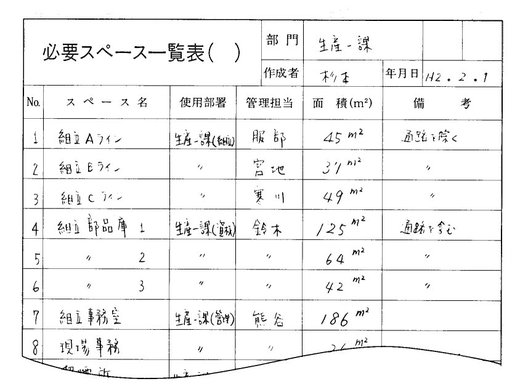 必要スペース一覧表( )
部門 生産一課
作成者 杉本 年月日 H2.2.1
No. スペース名 使用部署 管理担当 面積(m²) 備考
1 組立Aライン 生産一課(組立) 服部 45 m² 通路を除く
2 組立Bライン 〃 宮地 37 m² 〃
3 組立Cライン 〃 寒川 49 m² 〃
4 組立部品庫 1 生産一課(資材) 鈴木 125 m² 通路を含む
5 〃 2 〃 〃 64 m² 〃
6 〃 3 〃 〃 42 m² 〃
7 組立事務室 生産一課(管理) 熊谷 186 m²
8 現場事務 〃 〃 m²